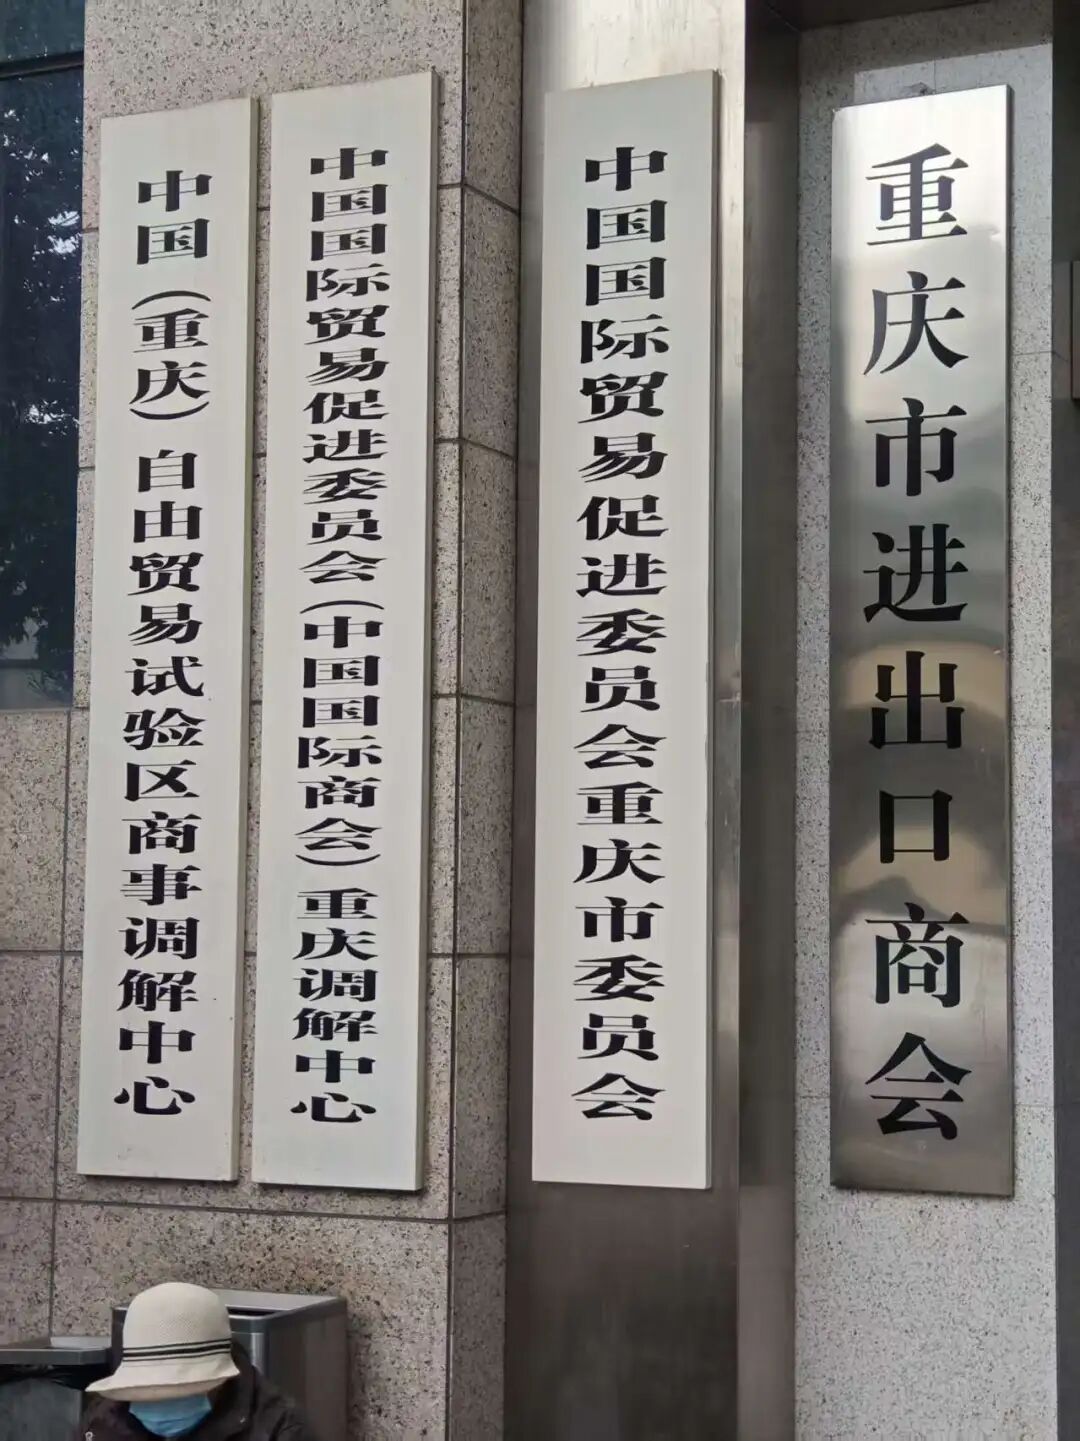 中国（重庆）自由贸易试验区商事调解中心
中国国际贸易促进委员会（中国国际商会）重庆调解中心
中国国际贸易促进委员会重庆市委员会
重庆市进出口商会